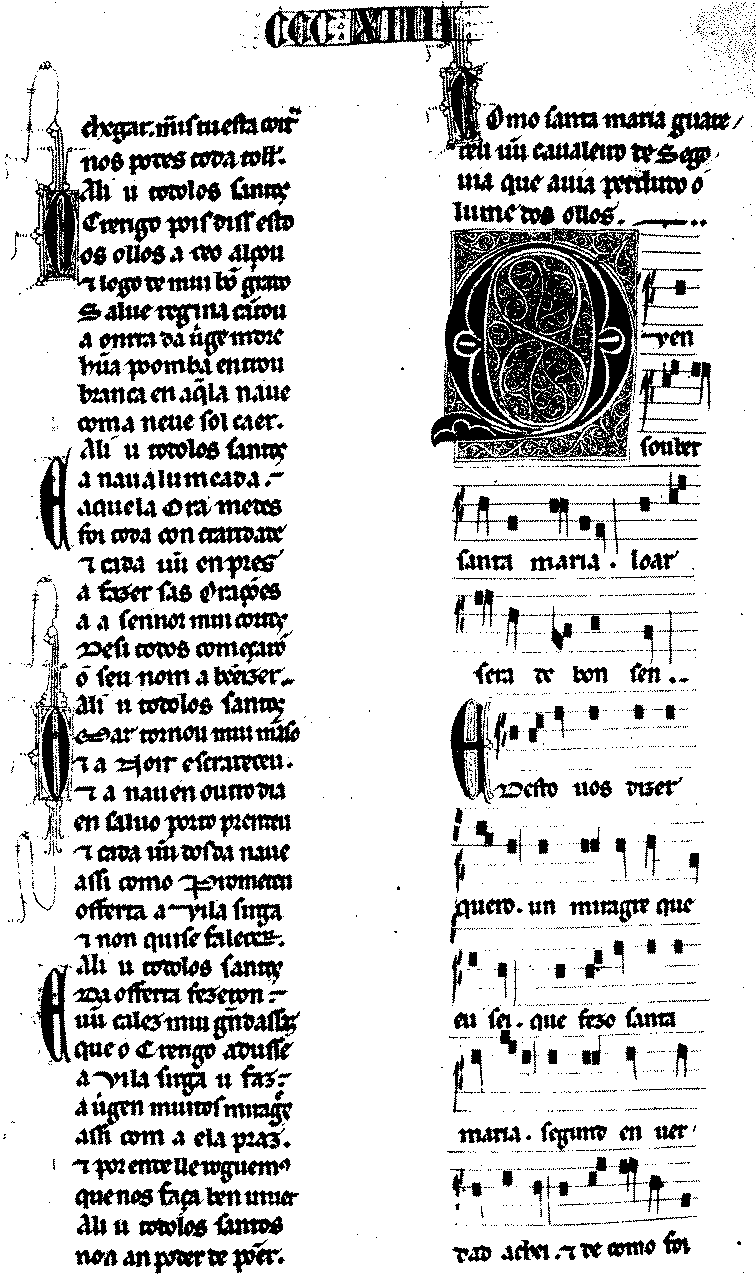 CCC XIIII
chegar. mais tu esta coit̃
nos podes toda toll̃.
Ali u todolos santꝯ
O crerigo pois diss esto
os ollos a ceo alçou
⁊ logo de mui bõ grado
Salue regina cãtou
a onrra da ũge madre
hũa poomba entrou
branca en aq̃la naue
com a neue sol caer.
Ali u todolos santꝯ
E a naue alumeada.
aquela Ora medes
foi toda con craridade
⁊ cada uũ en pres
a fazer sas Orações
a a sennor mui cortꝯ
Desi todos começarõ
o seu nom a bẽeizer.
Ali u todolos santꝯ
O mar tornou mui mãso
⁊ a Noit escrareceu.
⁊ a nau en outro dia
en saluo porto prendeu
⁊ cada uũ dos da naue
assi como Prometeu
offerta a Vila sirga
⁊ non quise falecer.
Ali u todolos santꝯ
E Da offerta fezeron
uũ calez mui grãdassaz
que o Crerigo adusse
a Vila sirga u faz
a ũgen muitos miragꝯ
assi com a ela praz.
⁊ por ende lle roguemꝰ
que nos faça ben uiuer
Ali u todolos santos
non an poder de põer.
Como santa maria guare
ceu uũ caualeiro de Sego
uia que auia perdudo o
lume dos ollos.
Quen
souber
santa maria . loar
sera de bon sen ..
E Desto uos dizer
quero. un miragre que
eu sei. que fezo santa
maria. segund en uer
dad achei. ⁊ de como foi